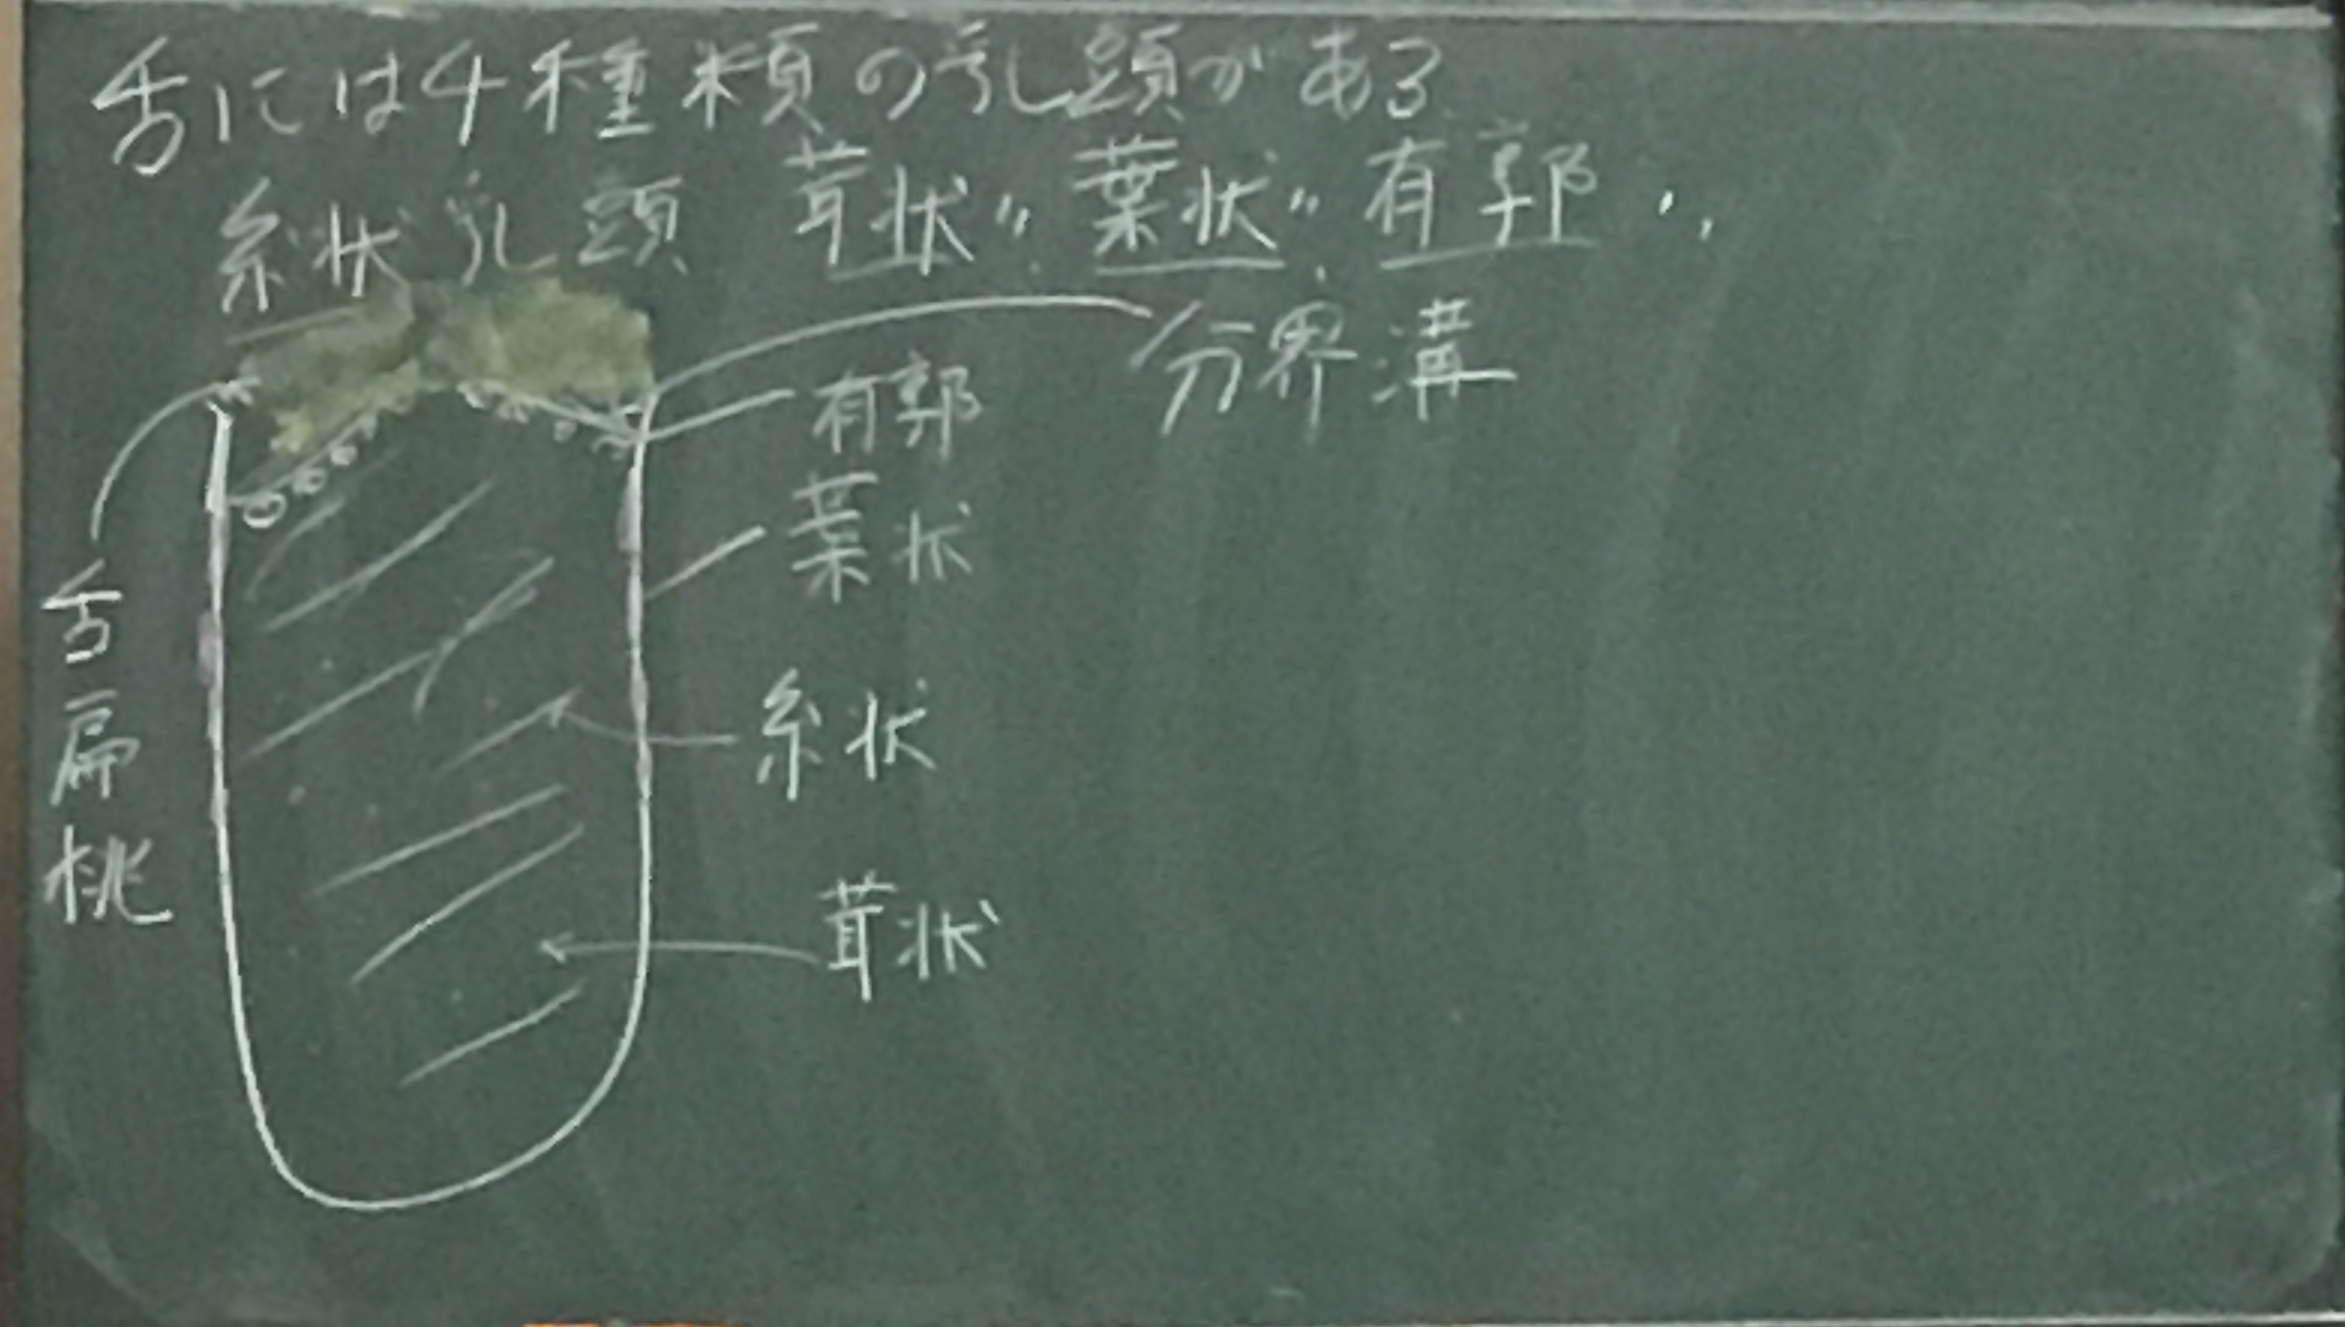 舌には4種類の乳頭がある
糸状乳頭 茸状〃 葉状〃 有郭〃
分界溝
有郭
葉状
糸状
茸状
舌扁桃